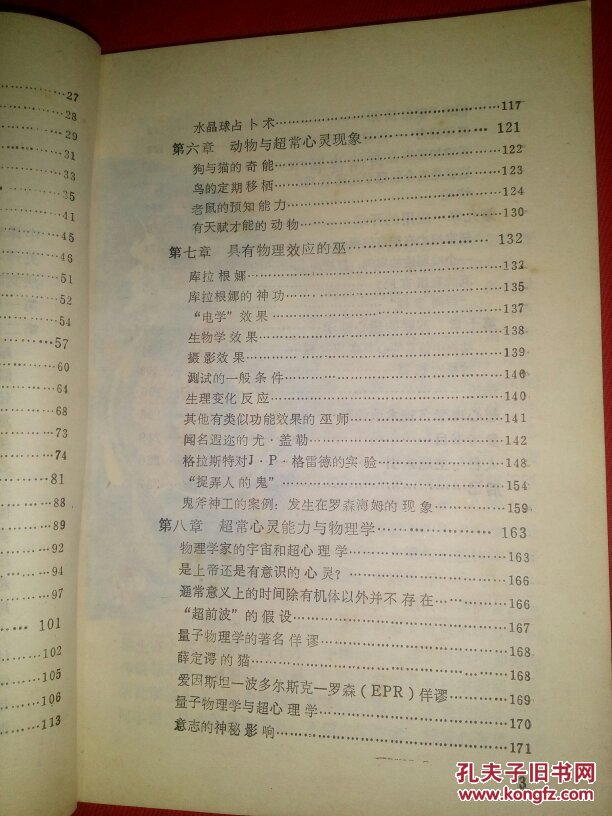 27
28
29
31
33
35
41
45
46
51
52
54
57
60
64
68
73
74
81
88
89
92
94
97
101
102
105
106
113
水晶球占卜术…………117
第六章 动物与超常心灵现象…………121
狗与猫的奇能…………122
鸟的定期移栖…………123
老鼠的预知能力…………124
有天赋才能的动物…………130
第七章 具有物理效应的巫…………132
库拉根娜…………132
库拉根娜的神功…………135
“电学”效果…………137
生物学效果…………138
摄影效果…………139
测试的一般条件…………140
生理变化反应…………140
其他有类似功能效果的巫师…………141
闻名遐迩的尤·盖勒…………142
格拉斯特对J·P·格雷德的实验…………148
“捉弄人的鬼”…………154
鬼斧神工的案例：发生在罗森海姆的现象…………159
第八章 超常心灵能力与物理学…………163
物理学家的宇宙和超心理学…………163
是上帝还是有意识的心灵？…………166
通常意义上的时间除有机体以外并不存在…………166
“超前波”的假设…………167
量子物理学的著名佯谬…………168
薛定谔的猫…………168
爱因斯坦—波多尔斯克—罗森（EPR）佯谬…………169
量子物理学与超心理学…………170
意志的神秘影响…………171
3
孔夫子旧书网
www.kongfz.com